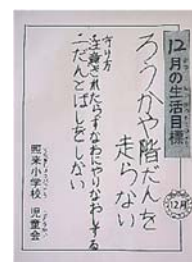 12月の生活目標
ろうかや階だんを
走らない
守り方
・注意されたらすなおにやりなおしする
・二だんとばしをしない
照来小学校 児童会
12月